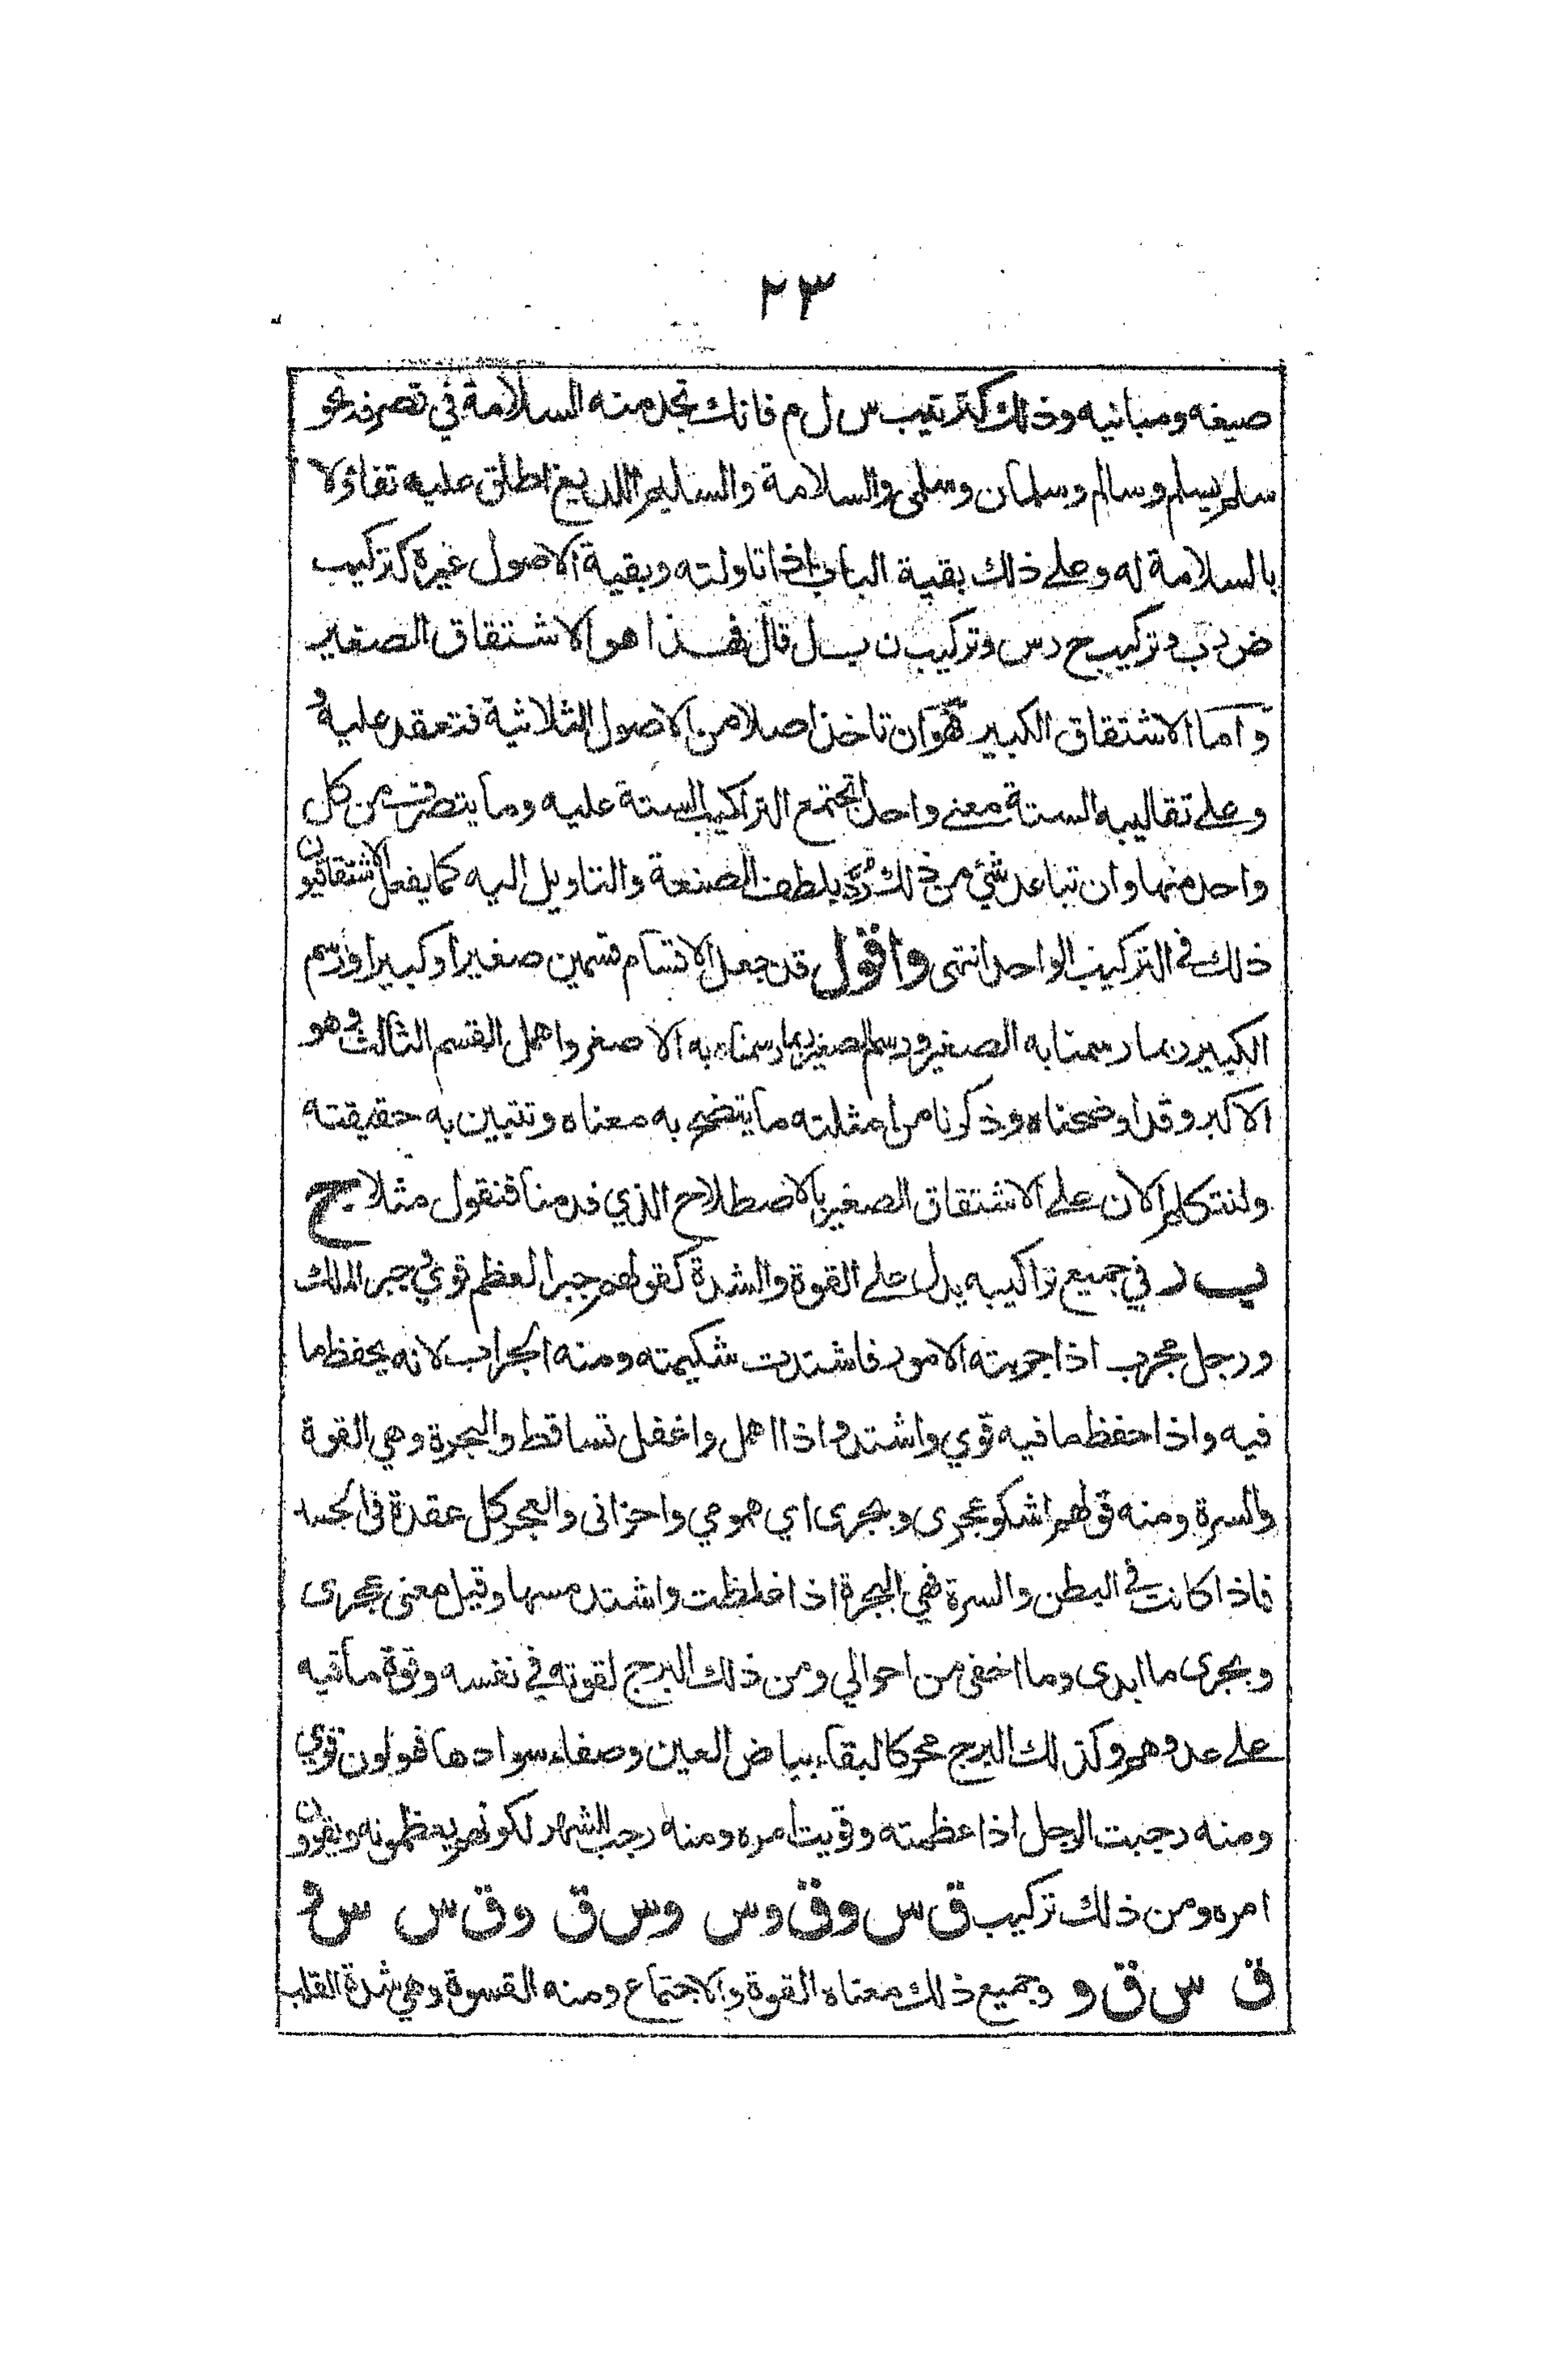 ٢٣
صيغه ومبانيه وذلك كترتيب س ل م فانك تجد منه السلامة في تصرفه نحو
سلم يسلم وسالم وسلمان وسلمى والسلامة والسليم اللديغ اطلق عليه تفاؤلا
بالسلامة له وعلى ذلك بقية الباب اذا تاولته وبقية الاصول غيره كتركيب
ض ر ب وتركيب ج ر س وتركيب ن ب ل قال فهذا هو الاشتقاق الصغير
واما الاشتقاق الكبير فهو ان تاخذ اصلا من الاصول الثلاثية فتعقد عليه و
وعلى تقاليبه الستة معنى واحدا تجتمع التراكيب الستة عليه وما يتصرف من كل
واحد منها وان تباعد شئ من ذلك رُدّ بلطف الصنعة والتاويل اليه كما يفعل الاشتقاقيون
ذلك في التركيب الواحد انتهى واقول قد جعل الاقسام قسمين صغيرا وكبيرا ورسم
الكبير بما رسمنا به الصغير ورسم الصغير بما رسمناه به الاصغر واهمل القسم الثالث وهو
الاكبر وقد اوضحناه وذكرنا من امثلته ما يتضح به معناه وتتبين به حقيقته
ولنتكلم الان على الاشتقاق الصغير بالاصطلاح الذي قدمنا فنقول مثلا ج
ب ر في جميع تراكيبه يدل على القوة والشدة كقولهم جبر العظم قوي و جبر الملك
ورجل مجرب اذا جربته الامور فاشتدت شكيمته ومنه الجراب لانه يحفظ ما
فيه واذا حفظ ما فيه قوي واشتد واذا اهمل واغفل تساقط والبجرة وهي القوة
والسرة ومنه قولهم اشكو عجرى وبجرى اي همومي واحزاني والعجر كل عقدة في الجسد
فاذا كانت في البطن والسرة فهي البجرة اذا غلظت واشتد مسها وقيل معنى عجرى
وبجرى ما ابدى وما اخفى من احوالي ومن ذلك البرج لقوته في نفسه وقوة ما فيه
على عدوهم وكذلك البرج محركا لبقاء بياض العين وصفاء سوادها فهو لون قوي
ومنه رجبت الرجل اذا عظمته وقويت امره ومنه رجب الشهر لكونهم يعظمونه ويقوون
امره ومن ذلك تركيب ق س و و ق و س و س ق و ق س س و
ق س ق و وجميع ذلك معناه القوة والاجتماع ومنه القسوة وهي شدة القلب